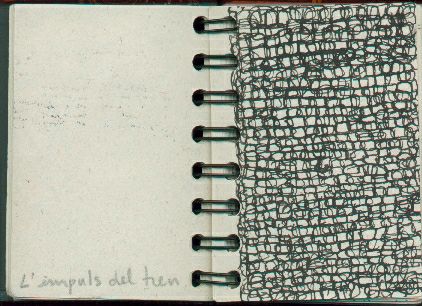 L'impuls del tren